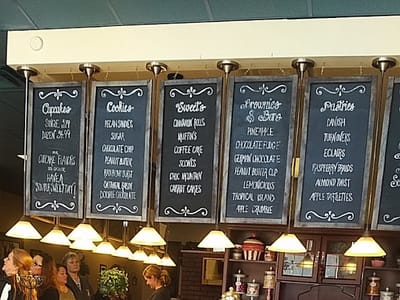 Cupcakes
Cookies
PECAN SANDIES
SUGAR
CHOCOLATE CHIP
PEANUT BUTTER
OATMEAL RAISIN
DOUBLE CHOCOLATE
Sweets
CINNAMON ROLLS
MUFFINS
COFFEE CAKE
SCONES
CHOC MOUNTAIN
CARROT CAKES
Brownies
& Bars
PINEAPPLE
CHOCOLATE FUDGE
GERMAN CHOCOLATE
PEANUT BUTTER CUP
LEMONCIOUS
TROPICAL ISLAND
APPLE CRUMBLE
Pastries
DANISH
TURNOVERS
ECLAIRS
RASPBERRY BRAIDS
ALMOND TWIST
APPLE